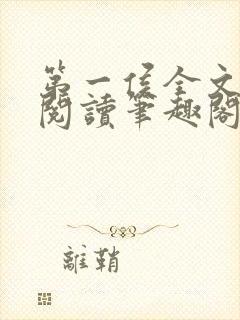 第一侯全文
閱讀筆趣閣
離鞘